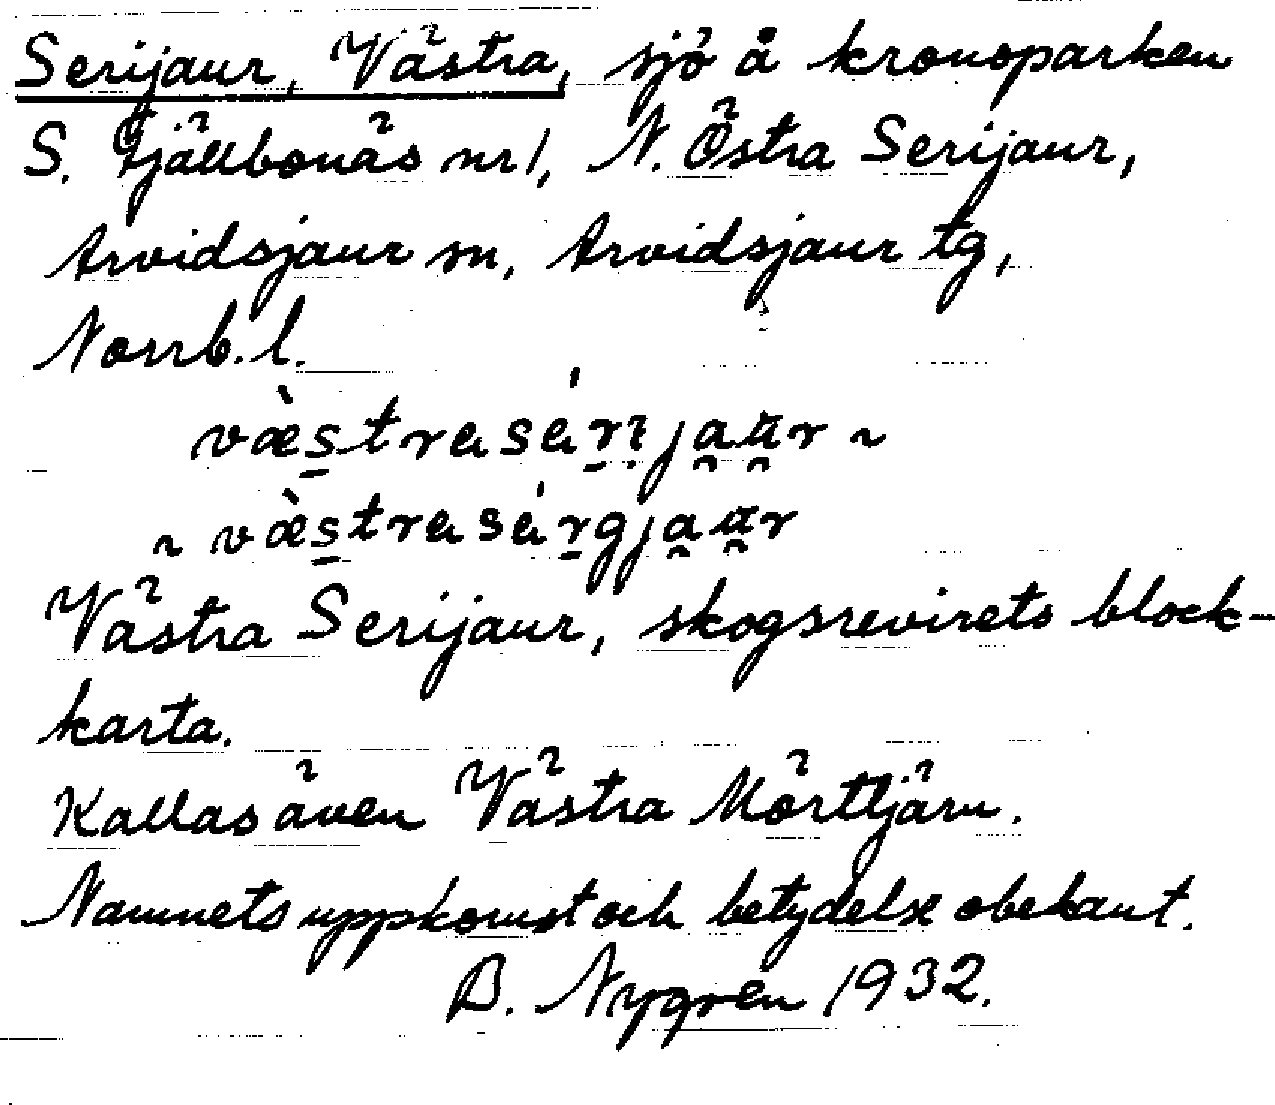 Serijaur, Västra, sjö å kronoparken
S. Fjällbonäs nr 1, N. Östra Serijaur,
Arvidsjaur sn, Arvidsjaur tg,
Norrb. l.
Västra Serijaur, skogsrevirets block-
karta.
Kallas även Västra Mörttjärn.
Namnets uppkomst och betydelse obekant.
B. Nygren 1932.